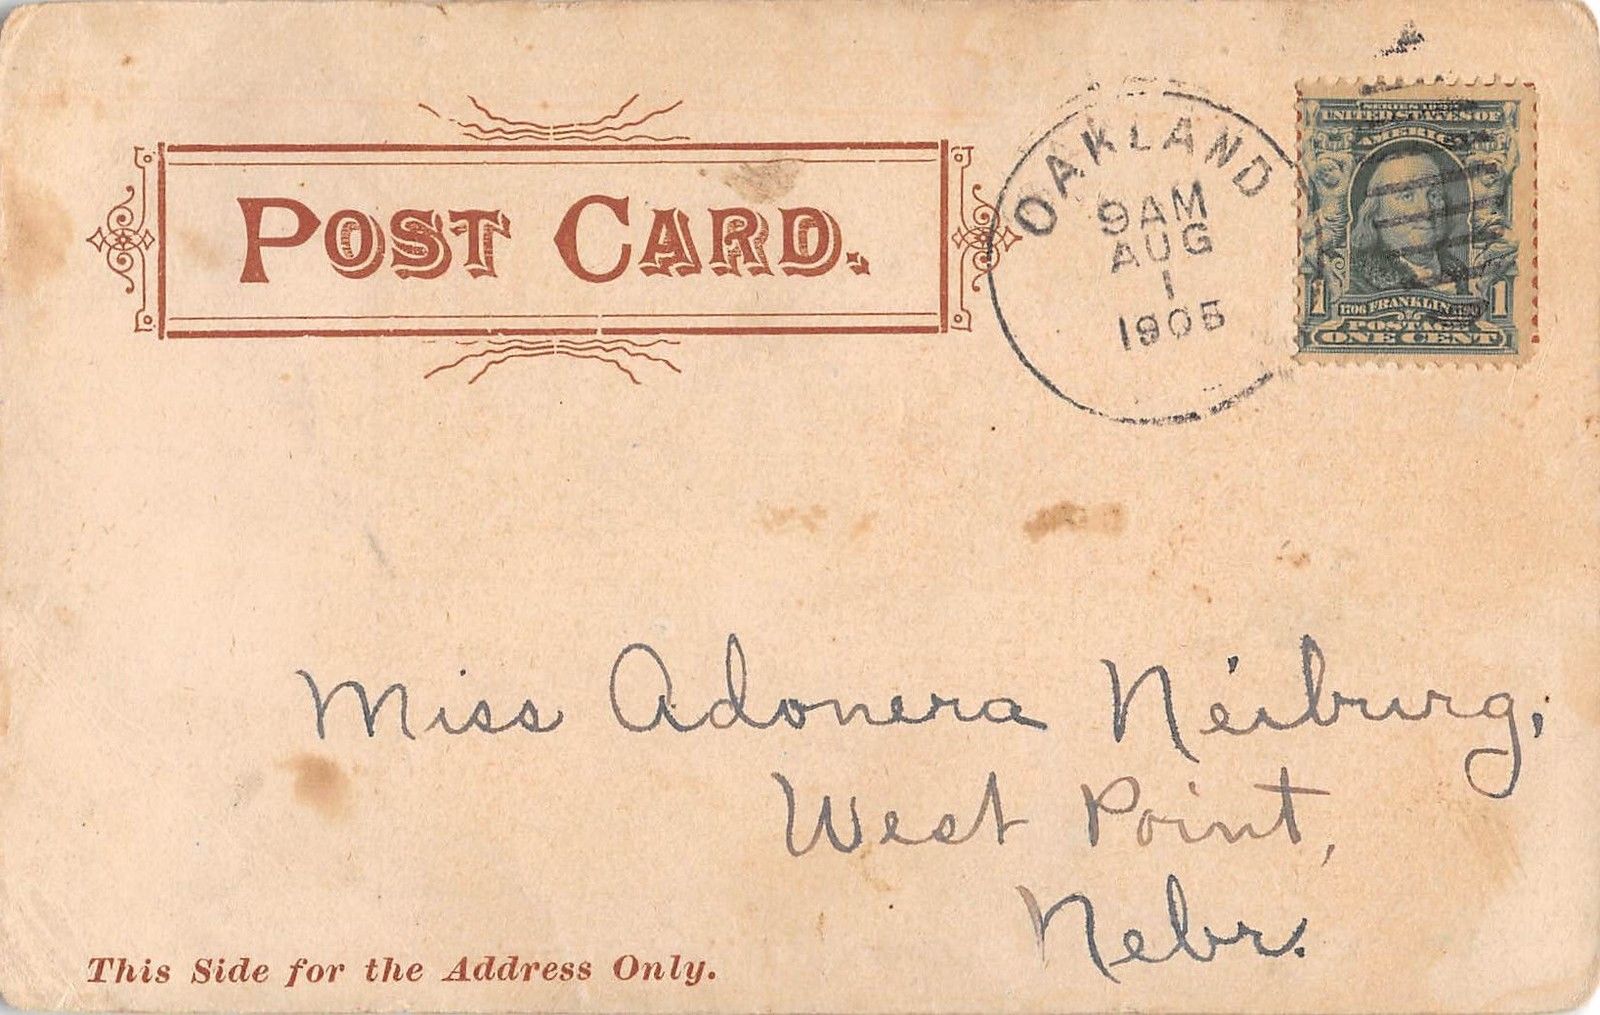 POST CARD.
OAKLAND
9AM
AUG
1
1905
SERIES 1902
UNITED STATES OF
AMERICA
1706 FRANKLIN 1790
1 POSTAGE 1
ONE CENT
Miss Adonera Neiburg,
West Point,
Nebr.
This Side for the Address Only.